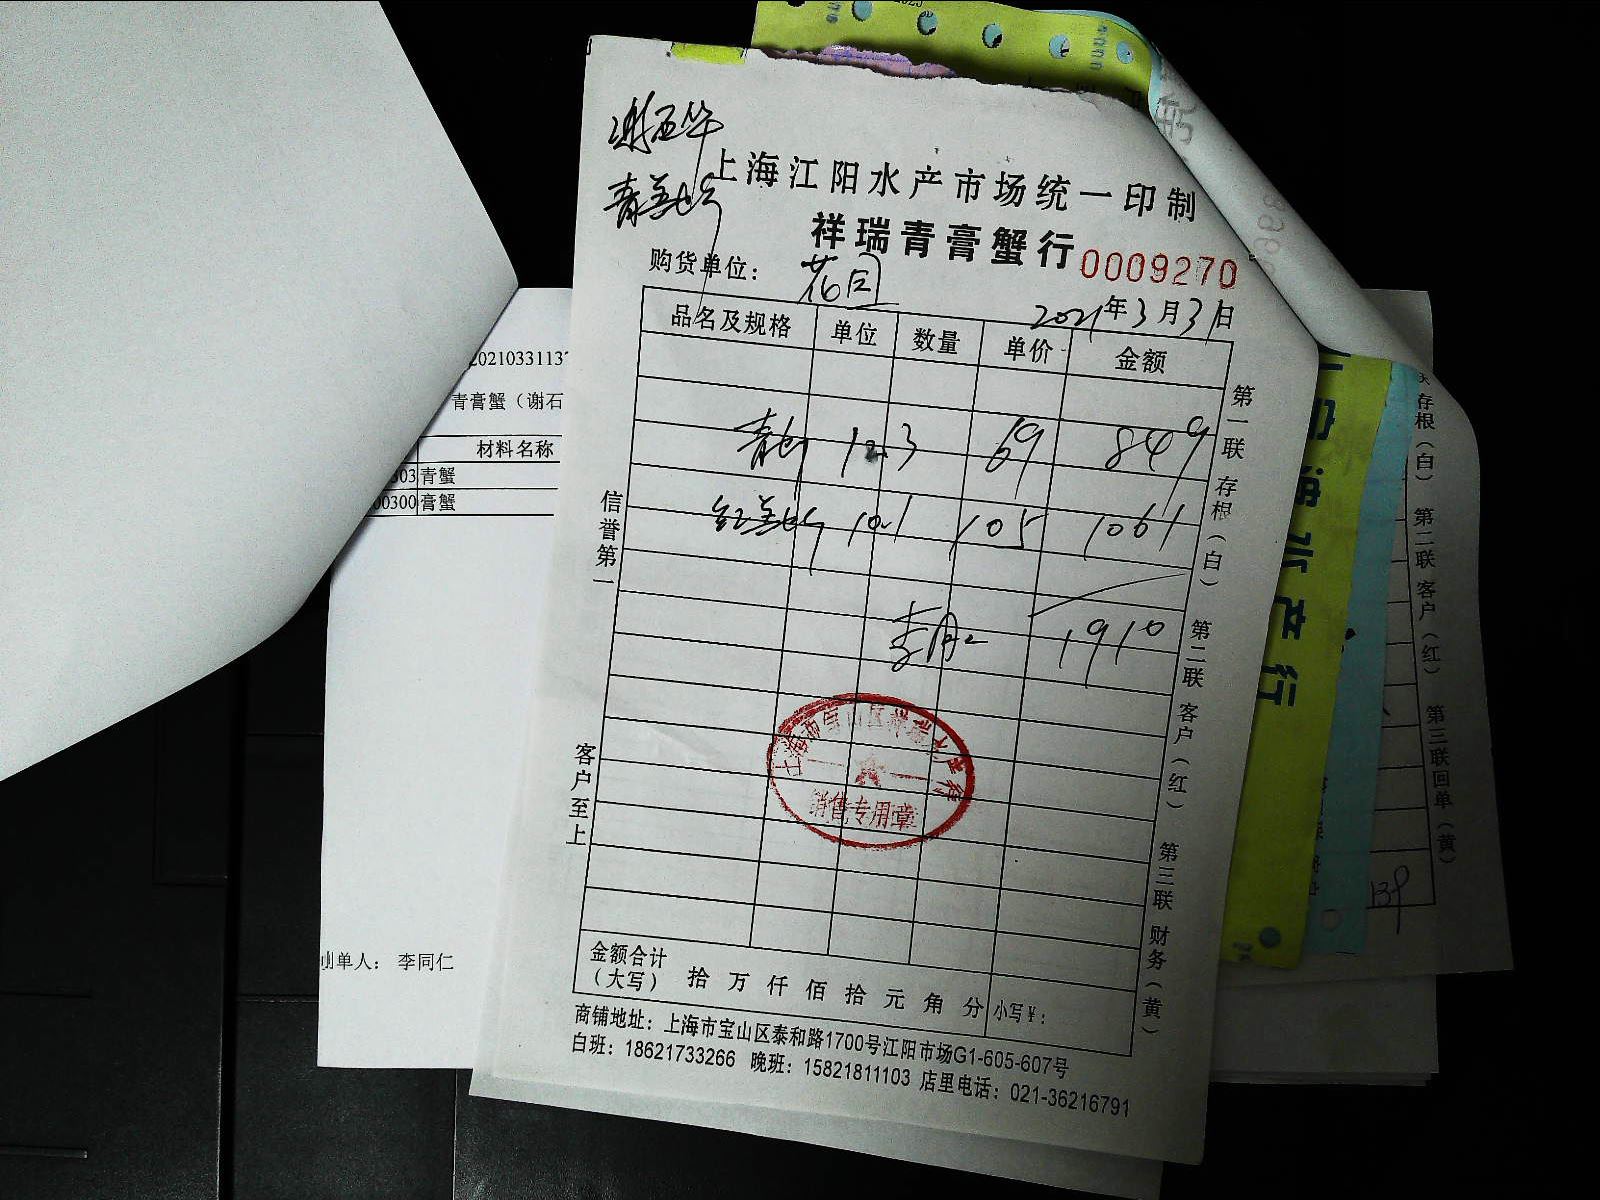 上海江阳水产市场统一印制
祥瑞青膏蟹行 0009270
购货单位： 花园
2021年3月31日
品名及规格 单位 数量 单价 金额
青蟹 12.3 69 849
红膏蟹 10.1 105 1061
1910
销售专用章
信誉第一
客户至上
第一联 存根（白） 第二联 客户（红） 第三联 财务（黄）
金额合计（大写） 拾 万 仟 佰 拾 元 角 分 小写¥：
商铺地址：上海市宝山区泰和路1700号江阳市场G1-605-607号
白班：18621733266 晚班：15821811103 店里电话：021-36216791
2021033113
青膏蟹（谢石
材料名称
303 青蟹
00300 膏蟹
单人： 李同仁
水产行
存根（白） 第二联 客户（红） 第三联 回单（黄）
139